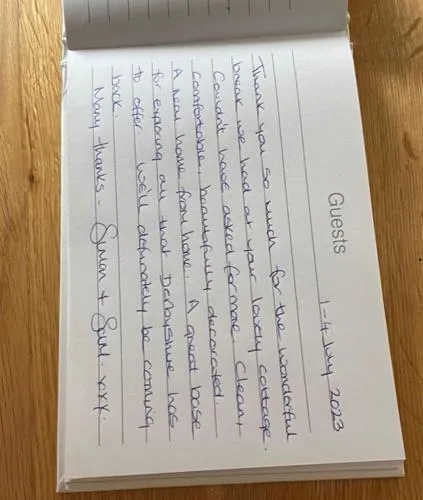 Guests
1-4 July 2023
Thank you so much for the wonderful
break we had at your lovely cottage.
Couldn't have asked for more. Clean,
comfortable, beautifully decorated.
A real home from home. A great base
for exploring all that Derbyshire has
to offer. We'll definately be coming
back.
Many thanks - Simon + Sam. xxx.